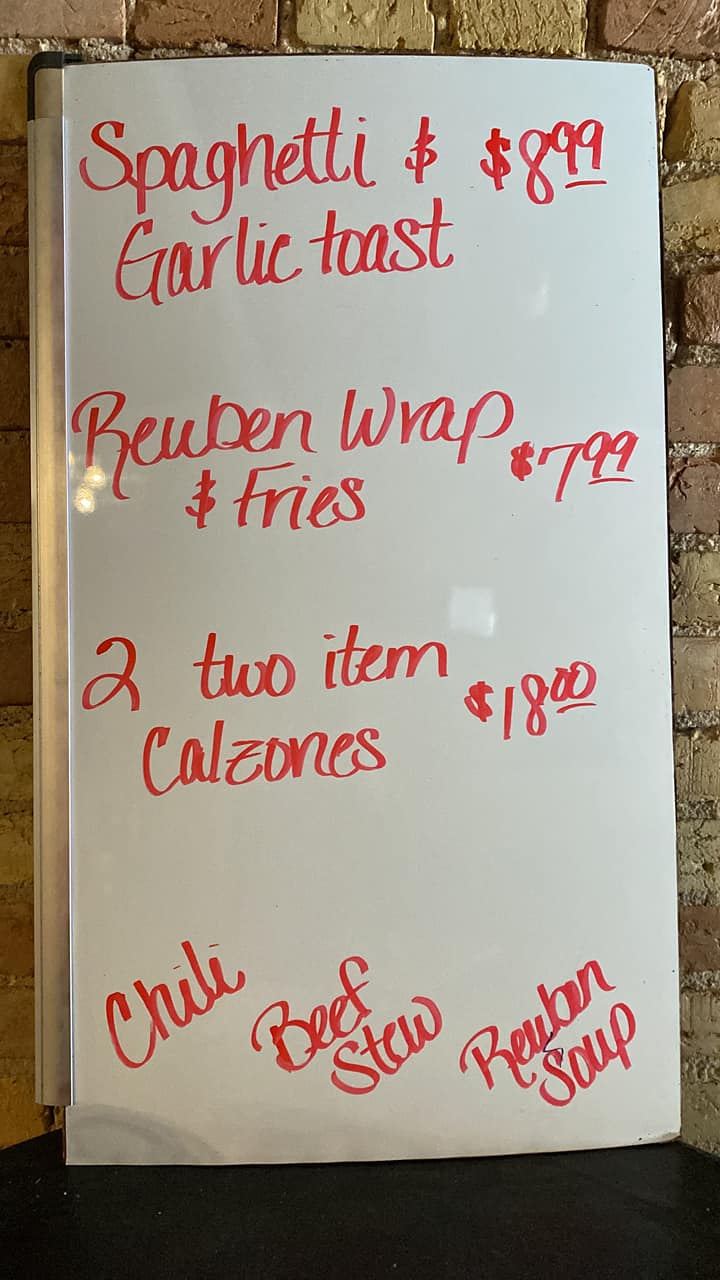 Spaghetti & $8.99
Garlic toast
Reuben Wrap $7.99
& Fries
2 two item $18.00
Calzones
Chili
Beef
Stew
Reuben
Soup